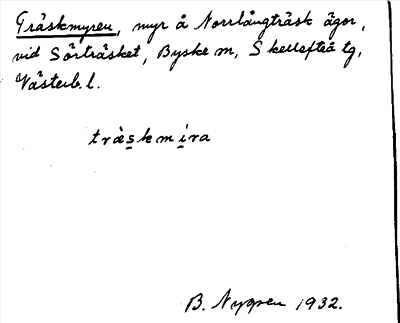 Träskmyren, myr å Norrlångträsk ägor,
vid Sörträsket, Byske m, Skellefteå tg,
Västerb. l.
träskmira
B. Nygren 1932.